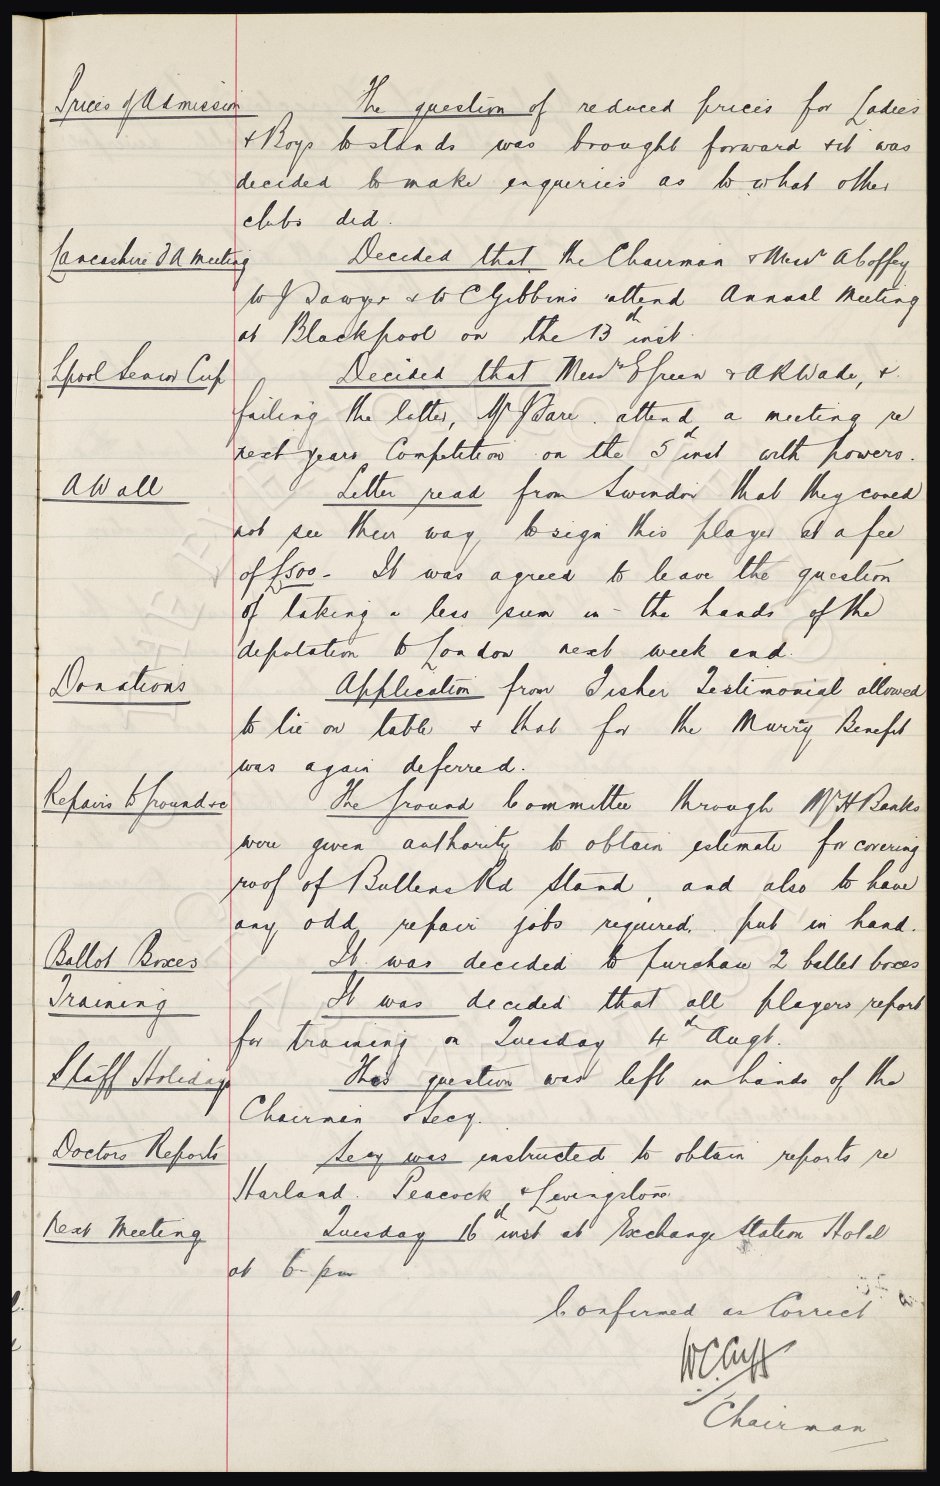 Prices of Admission The question of reduced prices for Ladies
& Boys to stands was brought forward & it was
decided to make enqueries as to what other
clubs did.
Lancashire F A Meeting Decided that the Chairman & Messrs A Coffey
W J Sawyer & W C Gibbins attend Annual Meeting
at Blackpool on the 13th inst.
Lpool Senior Cup Decided that Messrs E Green & A R Wade, &
failing the latter, Mr Bare. attend a meeting re
next years Competition on the 5th inst with powers.
A Wall Letter read from Swindon that they could
not see their way to sign this player at a fee
of £500 - It was agreed to leave the question
of taking a less sum in the hands of the
deputation to London next week end.
Donations Application from Fisher Testimonial allowed
to lie on table & that for the Murry Benefit
was again deferred.
Repairs to ground &c The Ground Committee through Mr H Banks
were given authority to obtain estimate for covering
roof of Bullens Rd Stand, and also to have
any odd repair jobs required. put in hand.
Ballot Boxes It was decided to purchase 2 ballot boxes
Training It was decided that all players report
for training on Tuesday 4th Augt.
Staff Holidays This question was left in hands of the
Chairman & Secy.
Doctors Reports Secy was instructed to obtain reports re
Harland. Peacock & Livingstone
Next Meeting Tuesday 16th inst at Exchange Station Hotel
at 6- pm
Confirmed as Correct
W.C. Cuff
Chairman